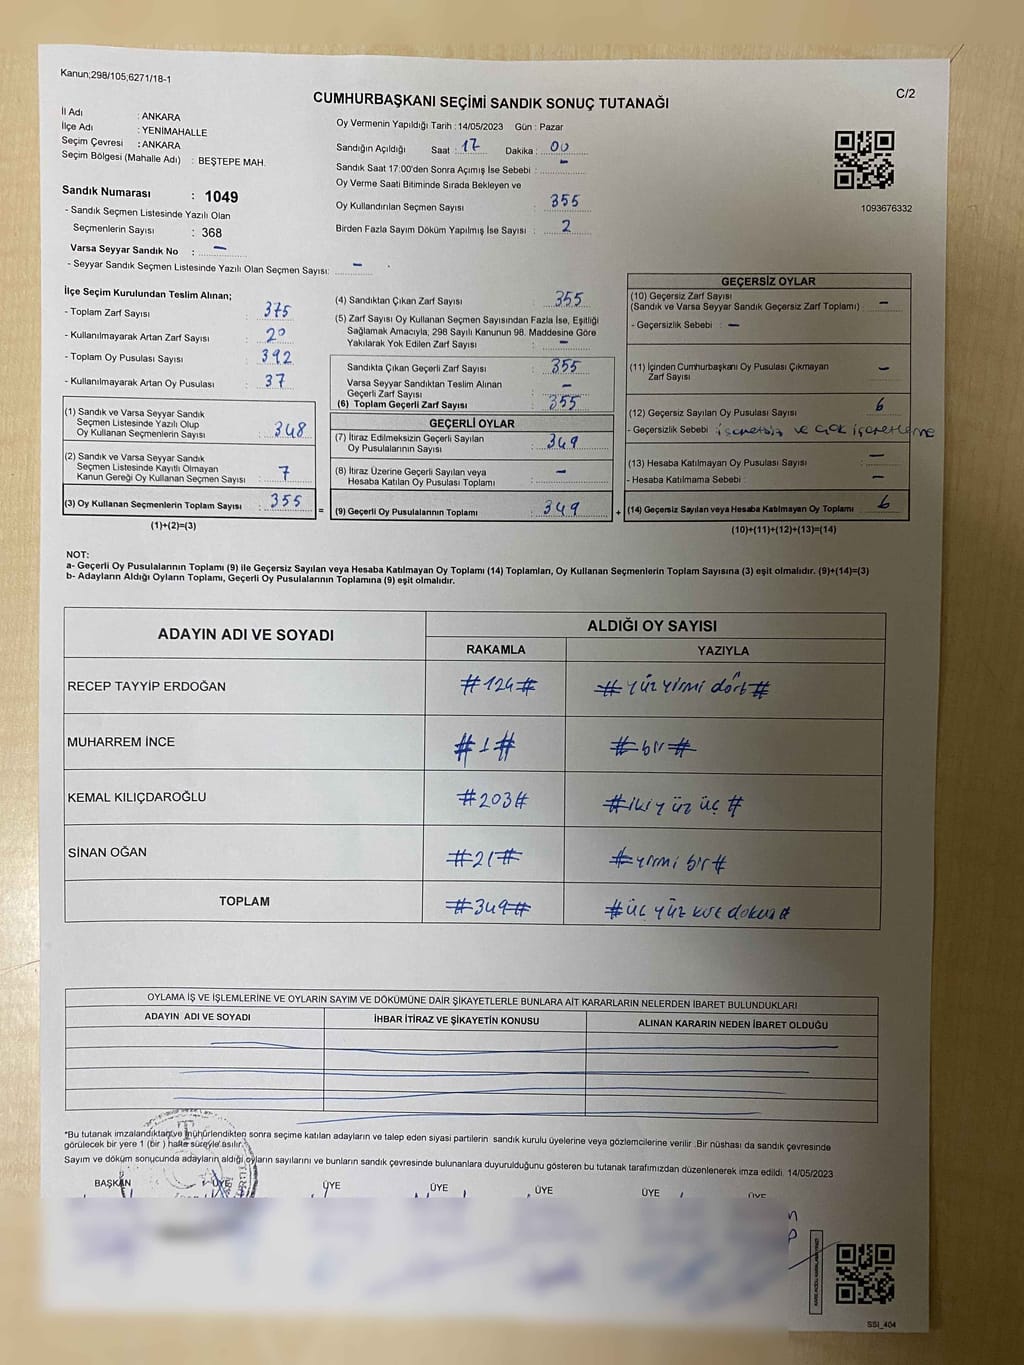 Kanun;298/105,6271/18-1
C/2
CUMHURBAŞKANI SEÇİMİ SANDIK SONUÇ TUTANAĞI
İl Adı : ANKARA
İlçe Adı : YENİMAHALLE
Seçim Çevresi : ANKARA
Seçim Bölgesi (Mahalle Adı) : BEŞTEPE MAH.
Sandık Numarası : 1049
- Sandık Seçmen Listesinde Yazılı Olan
Seçmenlerin Sayısı : 368
Varsa Seyyar Sandık No : –
- Seyyar Sandık Seçmen Listesinde Yazılı Olan Seçmen Sayısı: –
Oy Vermenin Yapıldığı Tarih : 14/05/2023 Gün : Pazar
Sandığın Açıldığı Saat : 17 Dakika : 00
Sandık Saat 17:00'den Sonra Açımış İse Sebebi : –
Oy Verme Saati Bitiminde Sırada Bekleyen ve
Oy Kullandırılan Seçmen Sayısı : 355
Birden Fazla Sayım Döküm Yapılmış İse Sayısı : 2
1093676332
İlçe Seçim Kurulundan Teslim Alınan;
- Toplam Zarf Sayısı : 375
- Kullanılmayarak Artan Zarf Sayısı : 20
- Toplam Oy Pusulası Sayısı : 392
- Kullanılmayarak Artan Oy Pusulası : 37
(1) Sandık ve Varsa Seyyar Sandık
Seçmen Listesinde Yazılı Olup
Oy Kullanan Seçmenlerin Sayısı : 348
(2) Sandık ve Varsa Seyyar Sandık
Seçmen Listesinde Kayıtlı Olmayan
Kanun Gereği Oy Kullanan Seçmen Sayısı : 7
(3) Oy Kullanan Seçmenlerin Toplam Sayısı : 355 =
(1)+(2)=(3)
(4) Sandıktan Çıkan Zarf Sayısı : 355
(5) Zarf Sayısı Oy Kullanan Seçmen Sayısından Fazla İse, Eşitliği
Sağlamak Amacıyla; 298 Sayılı Kanunun 98. Maddesine Göre
Yakılarak Yok Edilen Zarf Sayısı : –
Sandıkta Çıkan Geçerli Zarf Sayısı : 355
Varsa Seyyar Sandıktan Teslim Alınan
Geçerli Zarf Sayısı : –
(6) Toplam Geçerli Zarf Sayısı : 355
GEÇERLİ OYLAR
(7) İtiraz Edilmeksizin Geçerli Sayılan
Oy Pusulasının Sayısı : 349
(8) İtiraz Üzerine Geçerli Sayılan veya
Hesaba Katılan Oy Pusulası Toplamı : –
(9) Geçerli Oy Pusulalarının Toplamı : 349 +
GEÇERSİZ OYLAR
(10) Geçersiz Zarf Sayısı
(Sandık ve Varsa Seyyar Sandık Geçersiz Zarf Toplamı) : –
- Geçersizlik Sebebi : –
(11) İçinden Cumhurbaşkanı Oy Pusulası Çıkmayan
Zarf Sayısı : –
(12) Geçersiz Sayılan Oy Pusulası Sayısı : 6
- Geçersizlik Sebebi : işaretsiz ve çok işaretleme
(13) Hesaba Katılmayan Oy Pusulası Sayısı : –
- Hesaba Katılmama Sebebi : –
(14) Geçersiz Sayılan veya Hesaba Katılmayan Oy Toplamı : 6
(10)+(11)+(12)+(13)=(14)
NOT:
a- Geçerli Oy Pusulalarının Toplamı (9) ile Geçersiz Sayılan veya Hesaba Katılmayan Oy Toplamı (14) Toplamları, Oy Kullanan Seçmenlerin Toplam Sayısına (3) eşit olmalıdır. (9)+(14)=(3)
b- Adayların Aldığı Oyların Toplamı, Geçerli Oy Pusulalarının Toplamına (9) eşit olmalıdır.
ADAYIN ADI VE SOYADI ALDIĞI OY SAYISI
RAKAMLA YAZIYLA
RECEP TAYYİP ERDOĞAN #124# #yüz yirmi dört#
MUHARREM İNCE #1# #bir#
KEMAL KILIÇDAROĞLU #203# #iki yüz üç#
SİNAN OĞAN #21# #yirmi bir#
TOPLAM #349# #üç yüz kırk dokuz#
OYLAMA İŞ VE İŞLEMLERİNE VE OYLARIN SAYIM VE DÖKÜMÜNE DAİR ŞİKAYETLERLE BUNLARA AİT KARARLARIN NELERDEN İBARET BULUNDUKLARI
ADAYIN ADI VE SOYADI İHBAR İTİRAZ VE ŞİKAYETİN KONUSU ALINAN KARARIN NEDEN İBARET OLDUĞU
*Bu tutanak imzalandıktan ve mühürlendikten sonra seçime katılan adayların ve talep eden siyasi partilerin sandık kurulu üyelerine veya gözlemcilerine verilir .Bir nüshası da sandık çevresinde
görülecek bir yere 1 (bir ) hafta süreyle asılır.
Sayım ve döküm sonucunda adayların aldığı oyların sayılarını ve bunların sandık çevresinde bulunanlara duyurulduğunu gösteren bu tutanak tarafımızdan düzenlenerek imza edildi. 14/05/2023
BAŞKAN ÜYE ÜYE ÜYE ÜYE ÜYE ÜYE
SSI_404